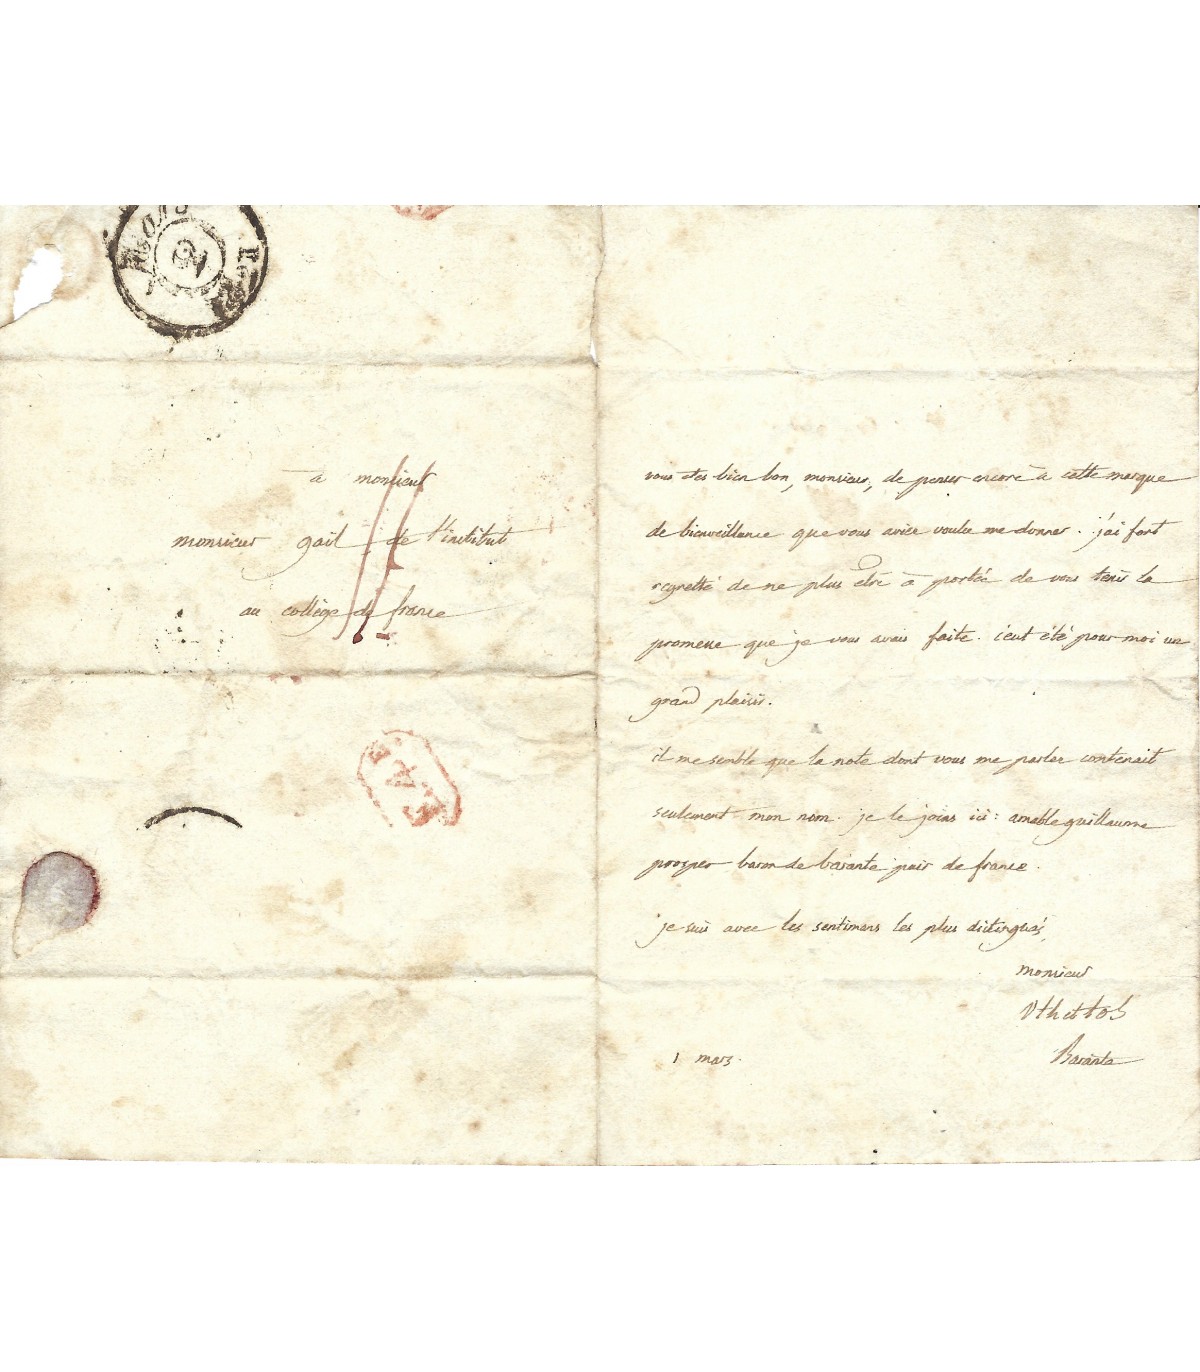 à monsieur
monsieur gail de l'institut
au collège de france
vous etes bien bon, monsieur, de penser encore à cette marque
de bienveillance que vous aviez voulu me donner. j'ai fort
regretté de ne plus etre à portée de vous tenir la
promesse que je vous avais faite. c'eut été pour moi un
grand plaisir.
il me semble que la note dont vous me parlez contenait
seulement mon nom. je le joins ici : amable guillaume
prosper baron de barante pair de france.
je suis avec les sentimens les plus distingués,
monsieur
Barante
1 mars.